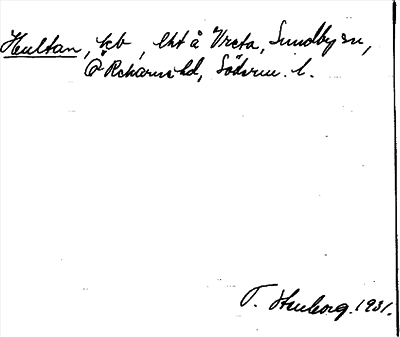 Hultan, tcb, lht å Vreta, Sundby sn,
Ö Rekarne hd, Söderm. l.
T. Stenborg. 1931.